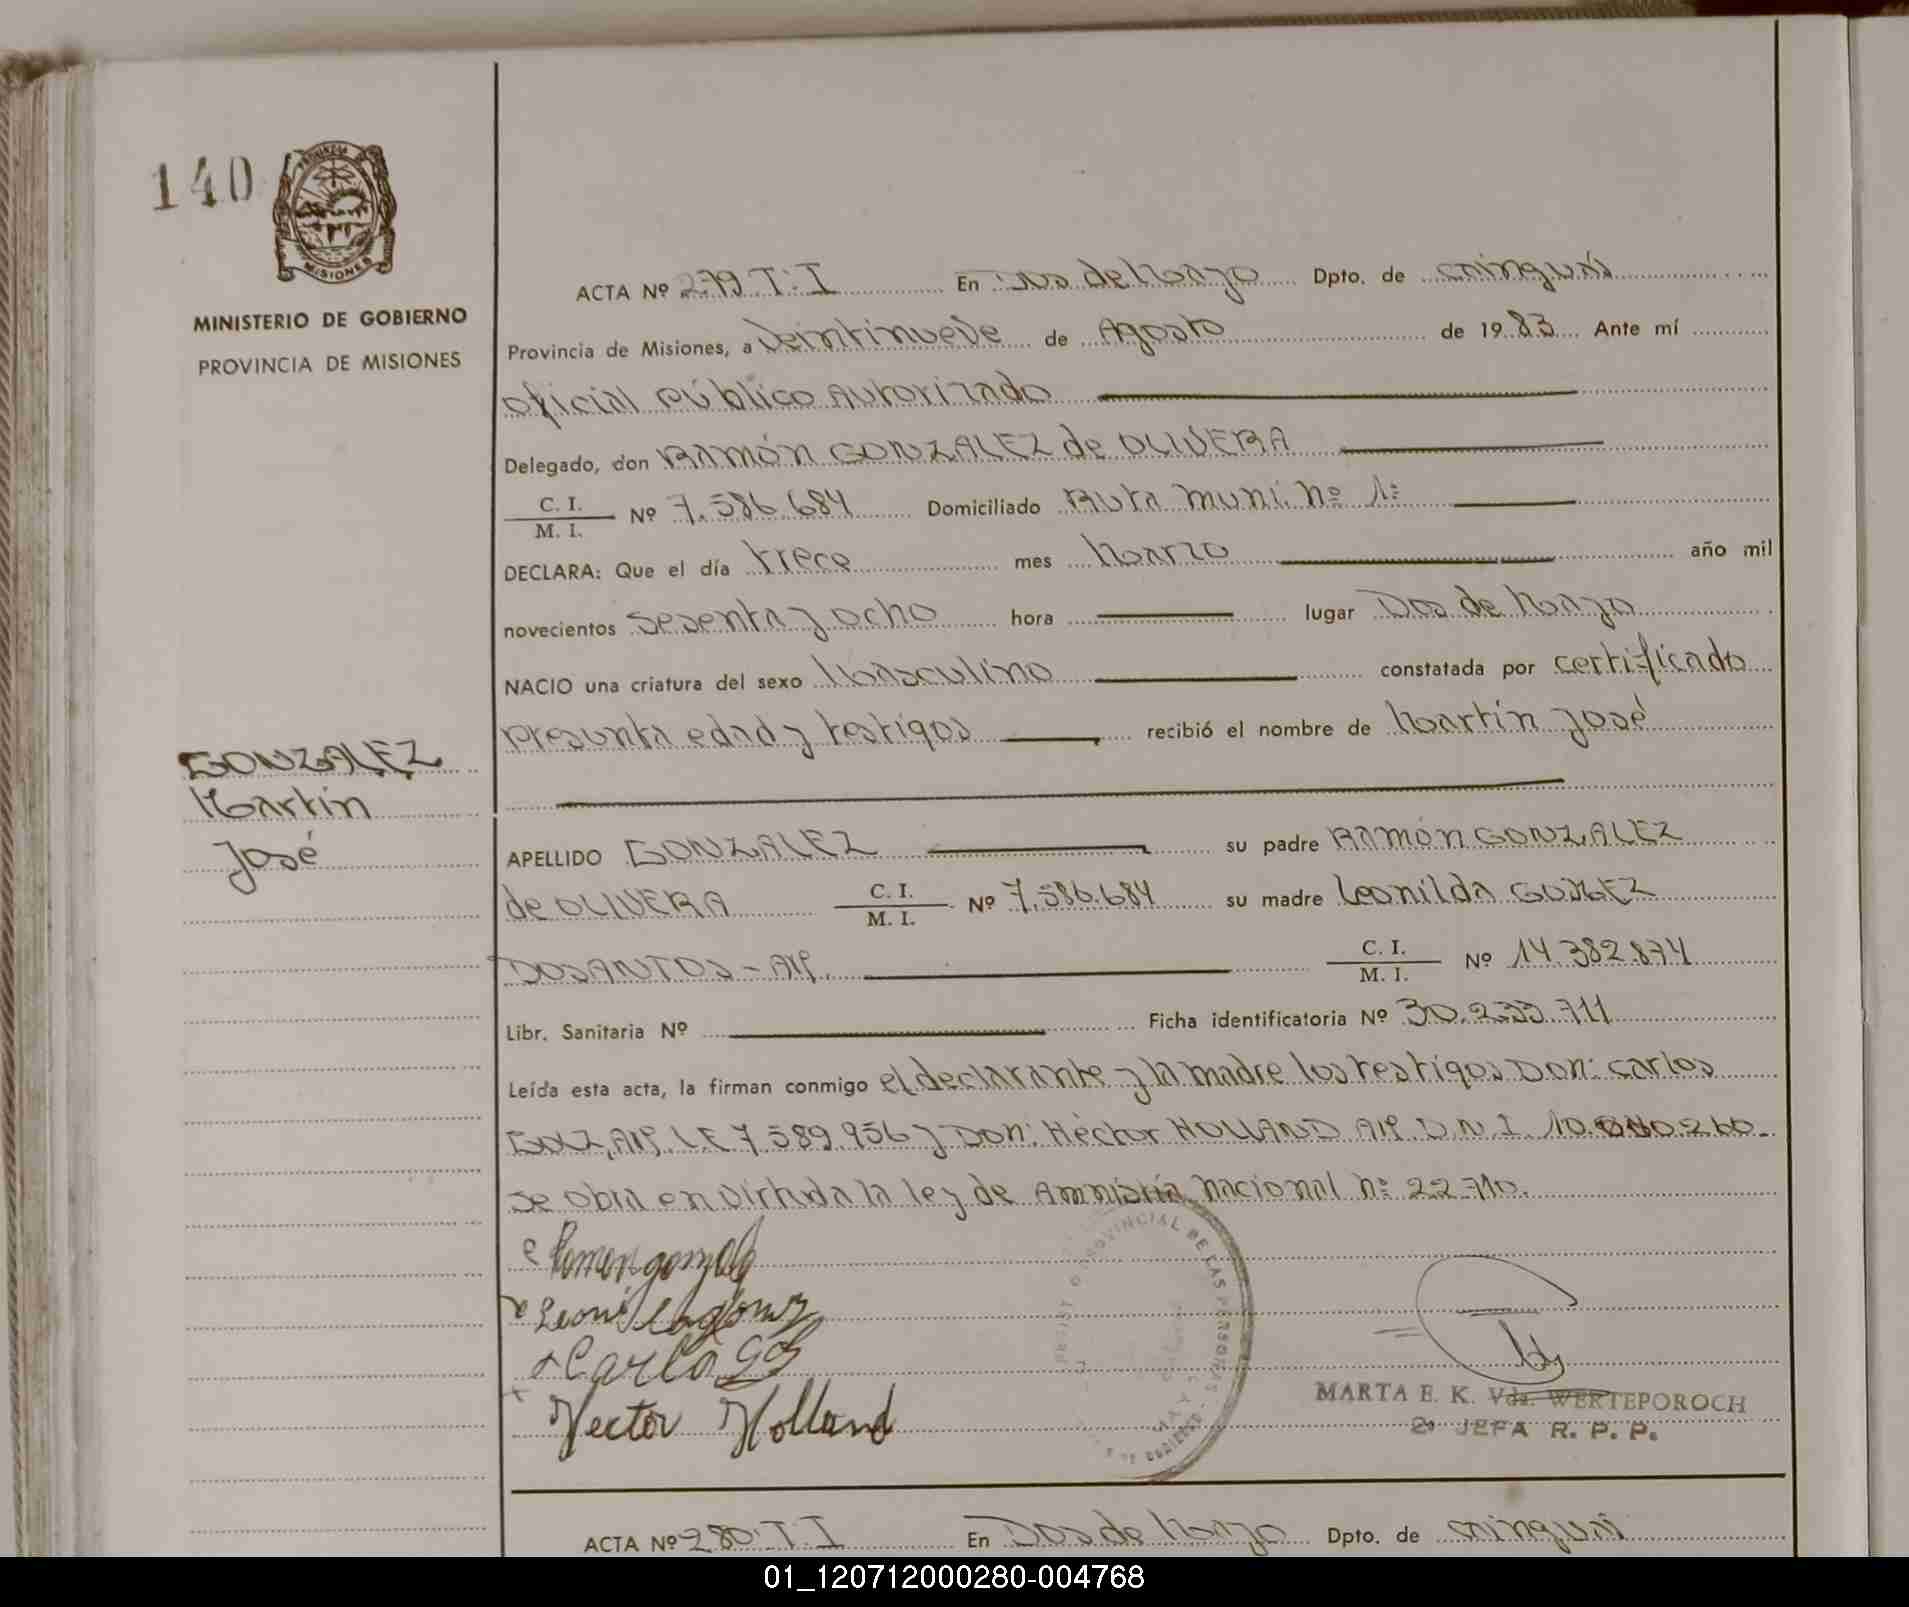 140
MISIONES
MINISTERIO DE GOBIERNO
PROVINCIA DE MISIONES
ACTA Nº 279 T: I En Dos de Mayo Dpto. de cainguás
Provincia de Misiones, a Veintinueve de Agosto de 1983 Ante mí
oficial Público Autorizado
Delegado, don RAMÓN GONZALEZ de OLIVERA
C. I.
M. I. Nº 7.586.684 Domiciliado Ruta muni. nº 1:
DECLARA: Que el día trece mes Marzo año mil
novecientos sesenta y ocho hora lugar Dos de Mayo
NACIO una criatura del sexo Masculino constatada por certificado
presunta edad y testigos recibió el nombre de Martín José
GONZALEZ
Martín
José
APELLIDO GONZALEZ su padre RAMÓN GONZALEZ
de OLIVERA C. I.
M. I. Nº 7.586.684 su madre Leonilda GOMEZ
DOSANTOS - Arg. C. I.
M. I. Nº 14.382.874
Libr. Sanitaria Nº Ficha identificatoria Nº 30.233.711
Leída esta acta, la firman conmigo el declarante y la madre los testigos Don: Carlos
GOLZ, Arg. L.E 7.589.956 y Don: Héctor HOLLAND Arg. D.N.I. 10.260.-
se obra en virtud a la ley de Amnistía nacional nº 22.710.
Ramon gonzale
Leonilda gomez
Carlo
Hector Holland
PROVINCIAL DE LAS PERSONAS
MARTA E. K. Vda. WERTEPOROCH
2ª JEFA R. P. P.
ACTA Nº 280 T. I En Dos de Mayo Dpto. de cainguás
01_120712000280-004768